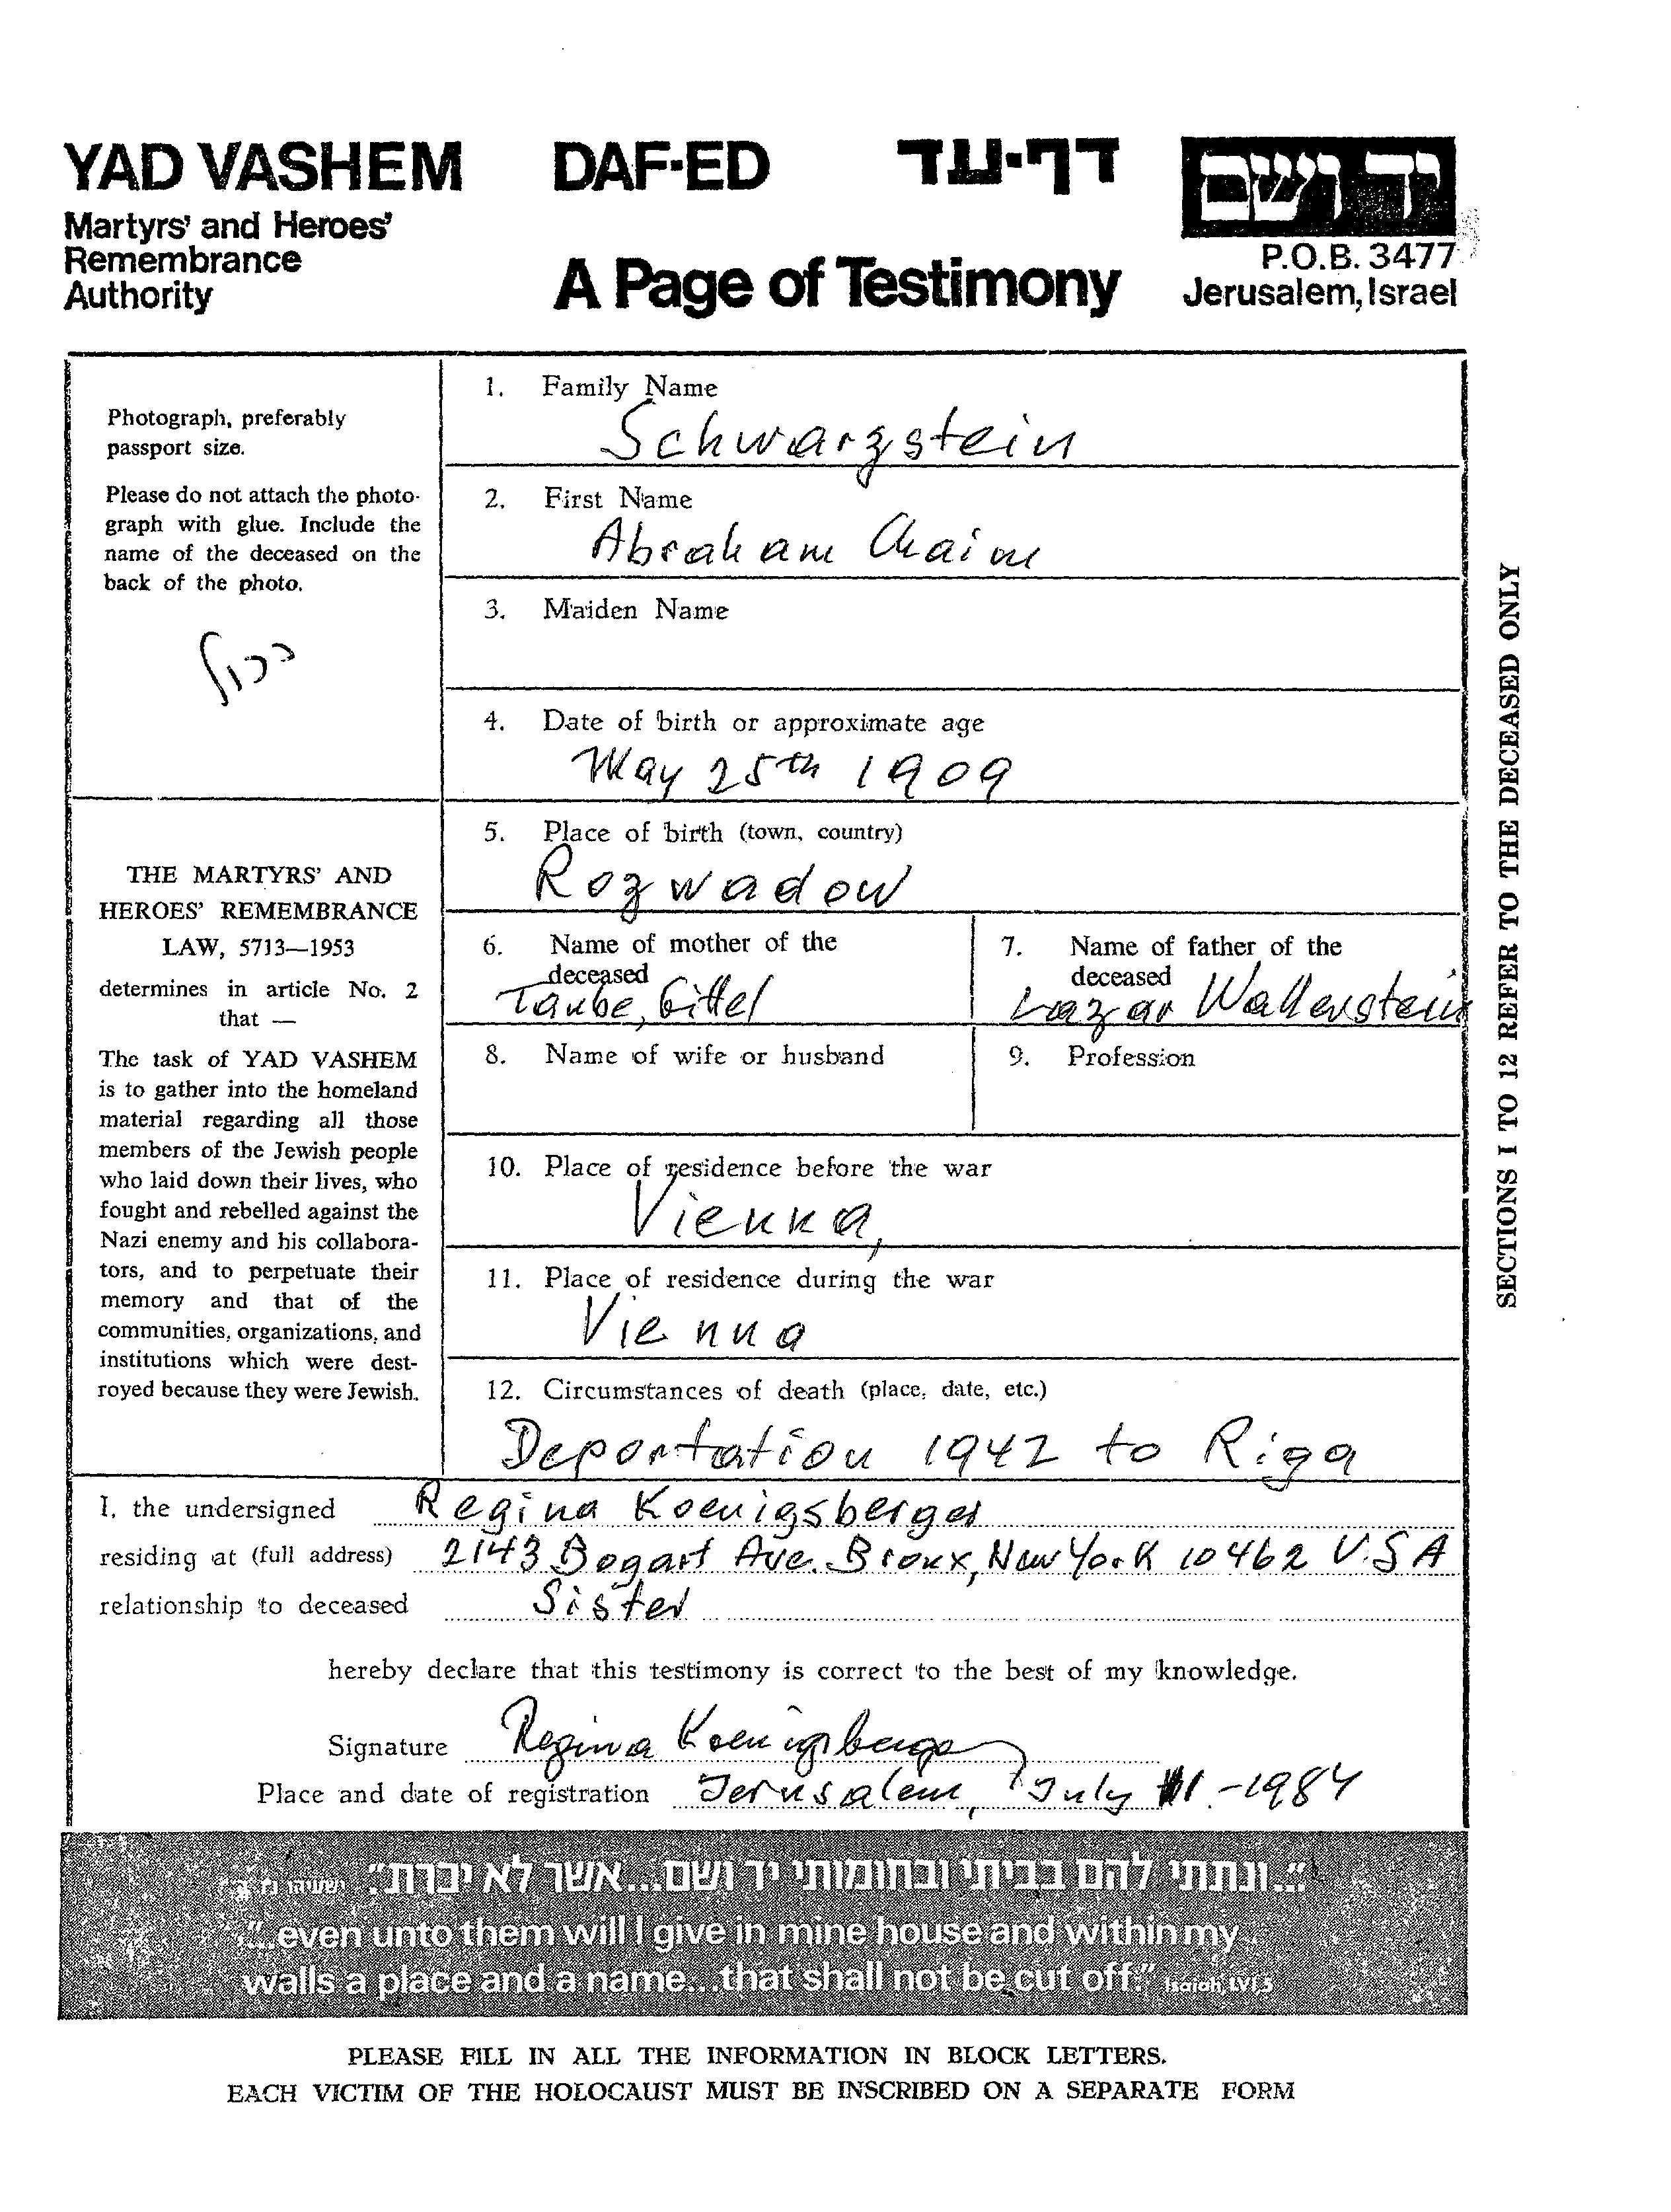 YAD VASHEM DAF-ED דף-עד ידושם
Martyrs' and Heroes'
Remembrance
Authority
A Page of Testimony
P.O.B. 3477
Jerusalem, Israel
Photograph, preferably
passport size.
Please do not attach the photo-
graph with glue. Include the
name of the deceased on the
back of the photo.
כפול
THE MARTYRS' AND
HEROES' REMEMBRANCE
LAW, 5713—1953
determines in article No. 2
that —
The task of YAD VASHEM
is to gather into the homeland
material regarding all those
members of the Jewish people
who laid down their lives, who
fought and rebelled against the
Nazi enemy and his collabora-
tors, and to perpetuate their
memory and that of the
communities, organizations, and
institutions which were dest-
royed because they were Jewish.
1. Family Name
Schwarzstein
2. First Name
Abraham Chaim
3. Maiden Name
4. Date of birth or approximate age
May 25th 1909
5. Place of birth (town, country)
Rozwadow
6. Name of mother of the
deceased
Taube, Gittel
7. Name of father of the
deceased
Lazar Wallenstein
8. Name of wife or husband
9. Profession
10. Place of residence before the war
Vienna,
11. Place of residence during the war
Vienna
12. Circumstances of death (place, date, etc.)
Deportation 1942 to Riga
SECTIONS 1 TO 12 REFER TO THE DECEASED ONLY
I, the undersigned Regina Koenigsberger
residing at (full address) 2143 Bogart Ave. Bronx, New York 10462 U.S A
relationship to deceased Sister
hereby declare that this testimony is correct to the best of my knowledge.
Signature Regina Koenigsberger
Place and date of registration Jerusalem, July 1.-1984
"...ונתתי להם בביתי ובחומותי יד ושם...אשר לא יכרת". ישעיהו נו ה
"...even unto them will I give in mine house and within my
walls a place and a name...that shall not be cut off." Isaiah, LVI,5
PLEASE FILL IN ALL THE INFORMATION IN BLOCK LETTERS.
EACH VICTIM OF THE HOLOCAUST MUST BE INSCRIBED ON A SEPARATE FORM